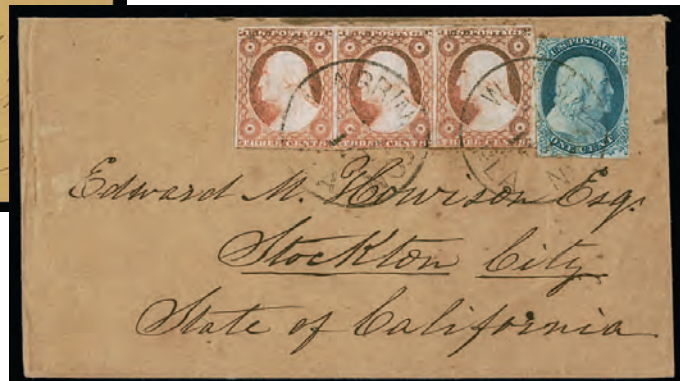 U.S. POSTAGE
THREE CENTS THREE CENTS THREE CENTS
ONE CENT
Edward M. Howison Esq.
Stockton City
State of California